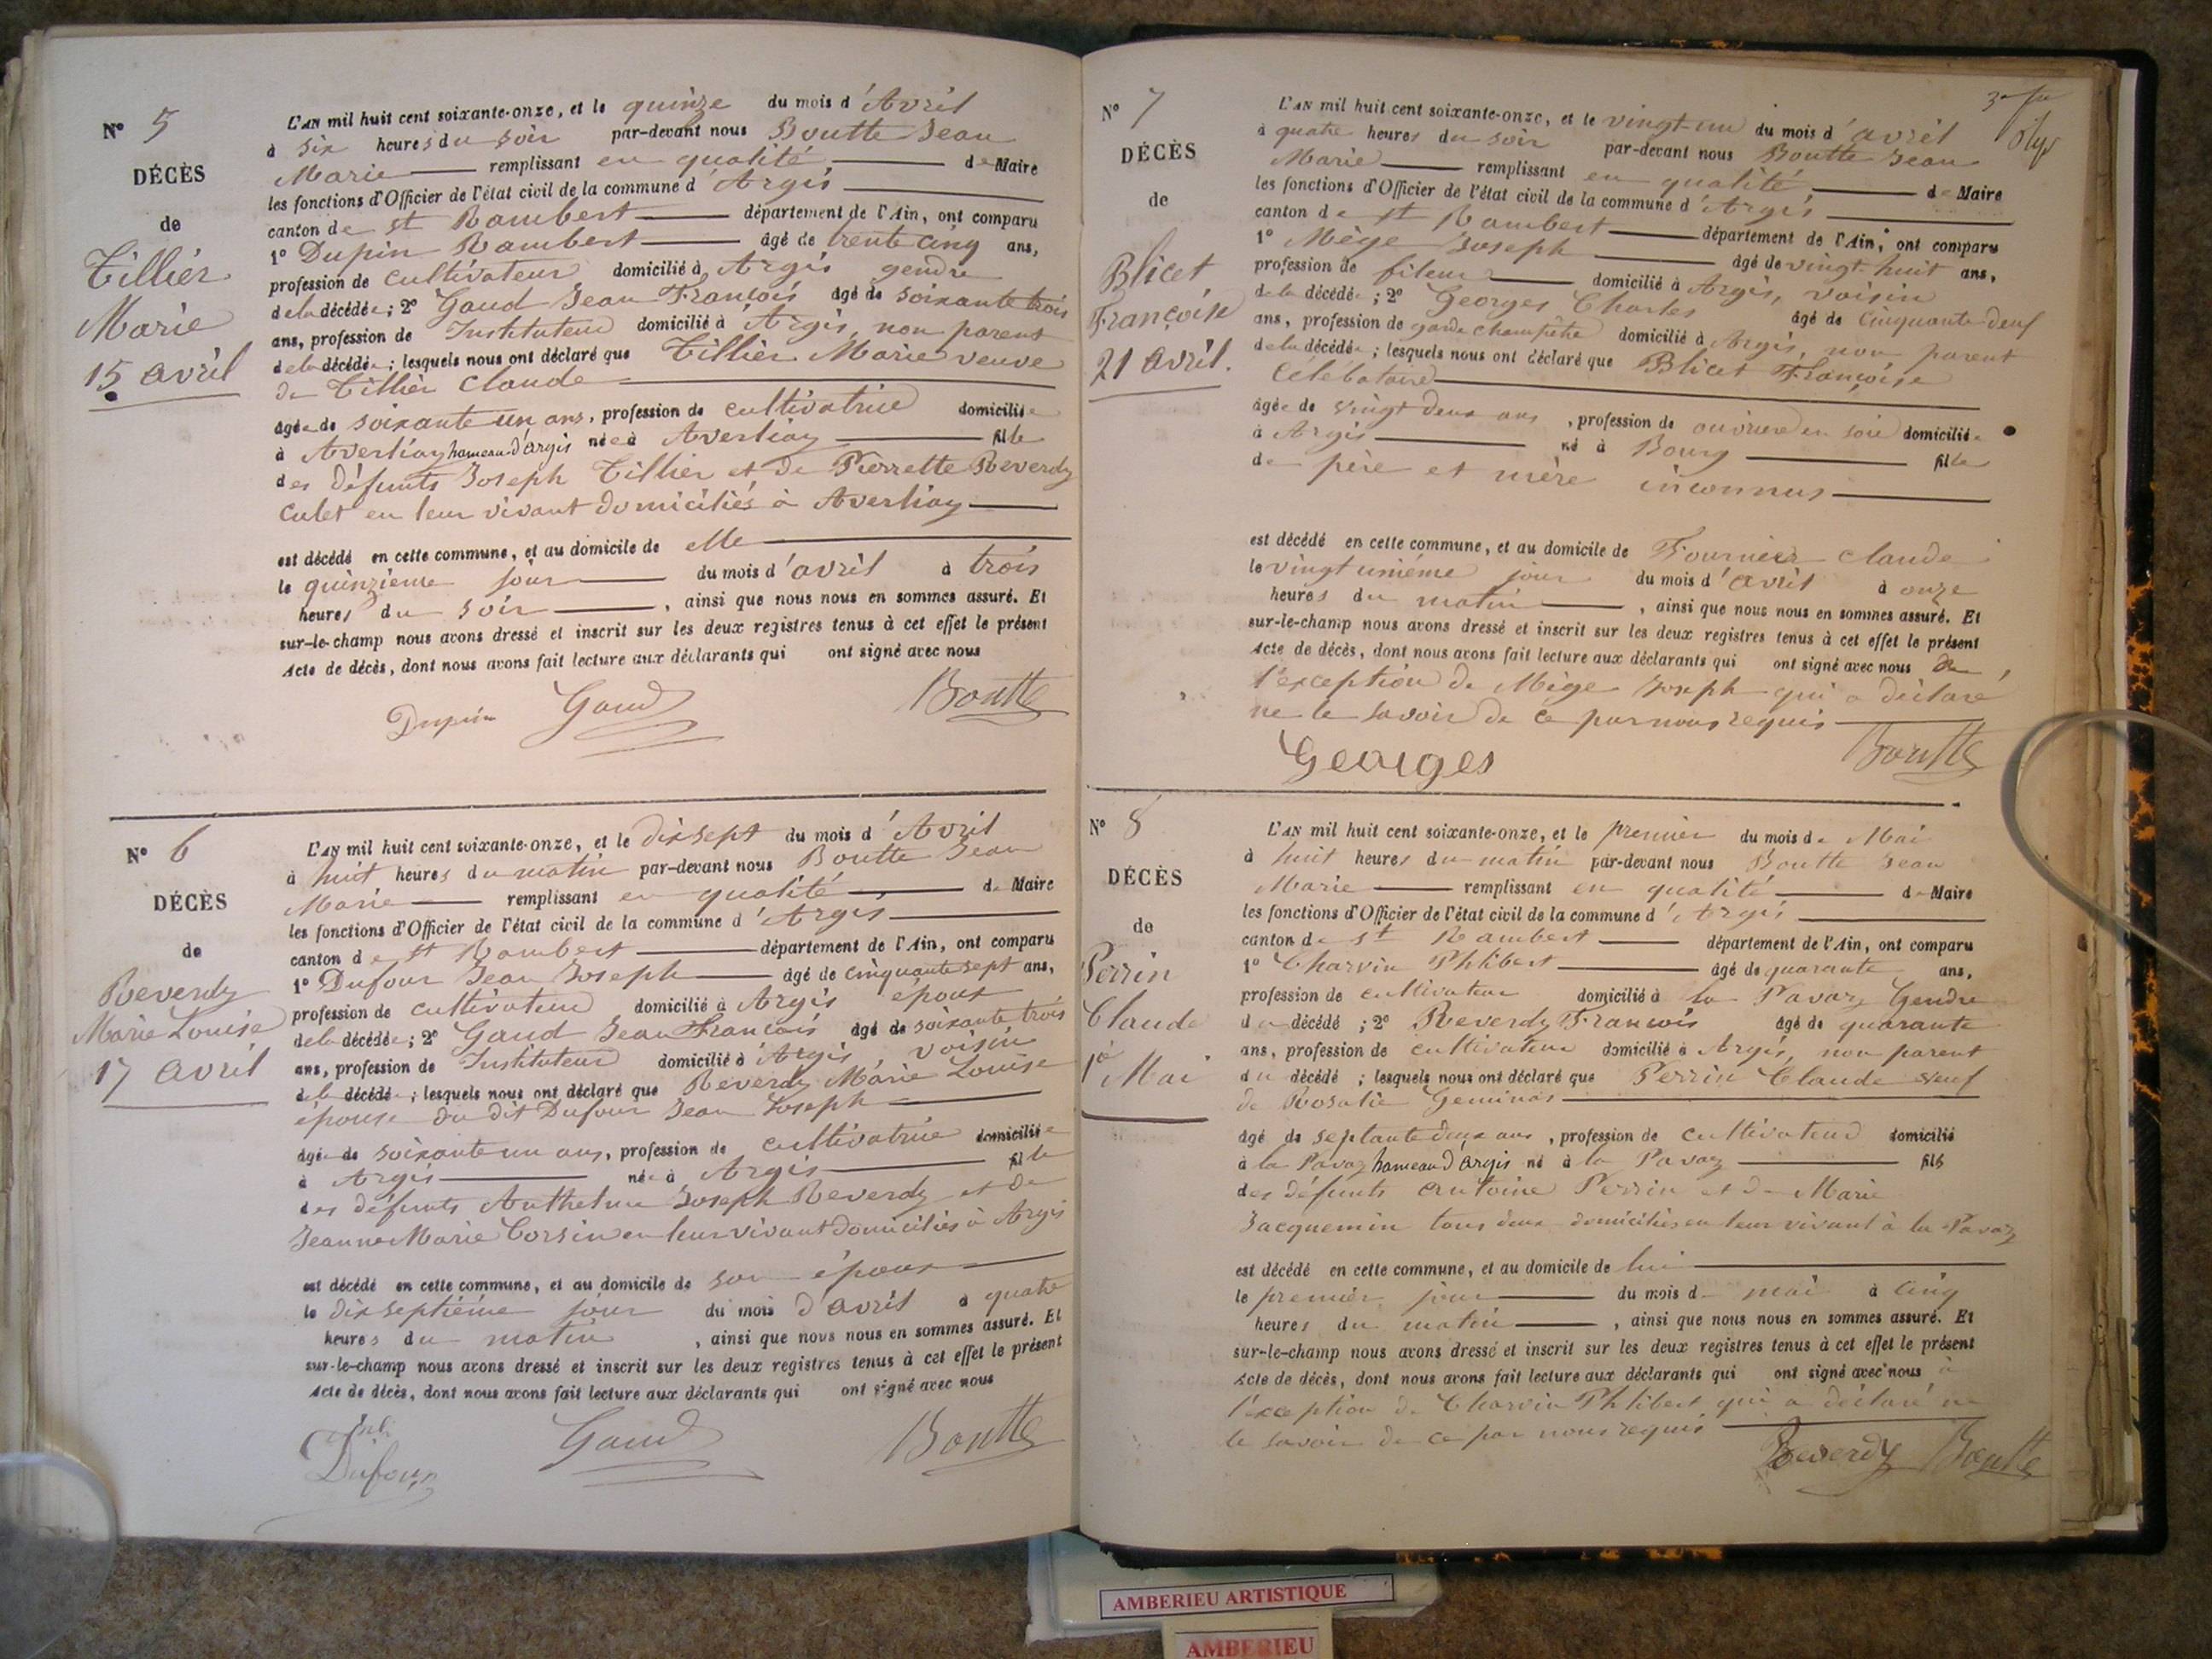 N° 5
DÉCÈS
de
Tillier
Marie
15 avril
L'AN mil huit cent soixante-onze, et le quinze du mois d'Avril
à six heures du soir par-devant nous Boutte Jean
Marie remplissant en qualité de Maire
les fonctions d'Officier de l'état civil de la commune d'Argis
canton de St Rambert département de l'Ain, ont comparu
1° Dupin Rambert âgé de trente cinq ans,
profession de cultivateur domicilié à Argis gendre
de la décédée; 2° Gaud Jean François âgé de soixante trois
ans, profession de Instituteur domicilié à Argis, non parent
de la décédée; lesquels nous ont déclaré que Tillier Marie veuve
de Tillier Claude
âgée de soixante un ans, profession de cultivatrice domiciliée
à Averliaz hameau d'argis née à Averliaz fille
des défunts Joseph Tillier et de Pierrette Reverdy
Culet en leur vivant domiciliés à Averliaz
est décédé en cette commune, et au domicile de elle
le quinzieme jour du mois d'avril à trois
heures du soir, ainsi que nous nous en sommes assuré. Et
sur-le-champ nous avons dressé et inscrit sur les deux registres tenus à cet effet le présent
Acte de décès, dont nous avons fait lecture aux déclarants qui ont signé avec nous
Dupin Gaud Boutte
N° 6
DÉCÈS
de
Reverdy
Marie Louise
17 avril
L'AN mil huit cent soixante-onze, et le dix sept du mois d'Avril
à huit heures du matin par-devant nous Boutte Jean
Marie remplissant en qualité de Maire
les fonctions d'Officier de l'état civil de la commune d'Argis
canton de St Rambert département de l'Ain, ont comparu
1° Dufour Jean Joseph âgé de cinquante sept ans,
profession de cultivateur domicilié à Argis époux
de la décédée; 2° Gaud Jean François âgé de soixante trois
ans, profession de Instituteur domicilié à Argis, voisin
de la décédée; lesquels nous ont déclaré que Reverdy Marie Louise
épouse du dit Dufour Jean Joseph
âgée de soixante un ans, profession de cultivatrice domiciliée
à Argis née à Argis fille
des défunts Anthelme Joseph Reverdy et de
Jeanne Marie Corsin en leur vivant domiciliés à Argis
est décédé en cette commune, et au domicile de son époux
le dix septième jour du mois d'avril à quatre
heures du matin, ainsi que nous nous en sommes assuré. Et
sur-le-champ nous avons dressé et inscrit sur les deux registres tenus à cet effet le présent
Acte de décès, dont nous avons fait lecture aux déclarants qui ont signé avec nous
Dufour Gaud Boutte
N° 7
DÉCÈS
de
Blicet
Françoise
21 avril.
L'AN mil huit cent soixante-onze, et le vingt-un du mois d'avril
à quatre heures du soir par-devant nous Boutte Jean
Marie remplissant en qualité de Maire
les fonctions d'Officier de l'état civil de la commune d'Argis
canton de St Rambert département de l'Ain, ont comparu
1° Mège Joseph âgé de vingt huit ans,
profession de fileur domicilié à Argis, voisin
de la décédée; 2° Georges Charles âgé de cinquante deuf
ans, profession de garde champêtre domicilié à Argis, non parent
de la décédée; lesquels nous ont déclaré que Blicet Françoise
célébataire
âgée de vingt deux ans, profession de ouvrière en soie domiciliée
à Argis né à Bourg fille
de père et mère inconnus
est décédé en cette commune, et au domicile de Fournier Claude
le vingt unième jour du mois d'avril à onze
heures du matin, ainsi que nous nous en sommes assuré. Et
sur-le-champ nous avons dressé et inscrit sur les deux registres tenus à cet effet le présent
Acte de décès, dont nous avons fait lecture aux déclarants qui ont signé avec nous
l'exception de Mège Joseph qui a déclaré
ne le savoir de ce par nous requis
Georges Boutte
N° 8
DÉCÈS
de
Perrin
Claude
1er Mai
L'AN mil huit cent soixante-onze, et le premier du mois de Mai
à huit heures du matin par-devant nous Boutte Jean
Marie remplissant en qualité de Maire
les fonctions d'Officier de l'état civil de la commune d'Argis
canton de St Rambert département de l'Ain, ont comparu
1° Charvin Phlibert âgé de quarante ans,
profession de cultivateur domicilié à la Pavaz Gendre
du décédé; 2° Reverdy François âgé de quarante
ans, profession de cultivateur domicilié à Argis, non parent
du décédé; lesquels nous ont déclaré que Perrin Claude veuf
de Rosalie Geminas
âgé de septante deux ans, profession de cultivateur domicilié
à la Pavaz hameau d'argis né à la Pavaz fils
des défunts Antoine Perrin et de Marie
Jacquemin tous deux domiciliés en leur vivant à la Pavaz
est décédé en cette commune, et au domicile de lui
le premier jour du mois de mai à cinq
heures du matin, ainsi que nous nous en sommes assuré. Et
sur-le-champ nous avons dressé et inscrit sur les deux registres tenus à cet effet le présent
Acte de décès, dont nous avons fait lecture aux déclarants qui ont signé avec nous à
l'exception de Charvin Phlibert qui a déclaré ne
le savoir de ce par nous requis
Reverdy Boutte
AMBERIEU ARTISTIQUE
AMBERIEU